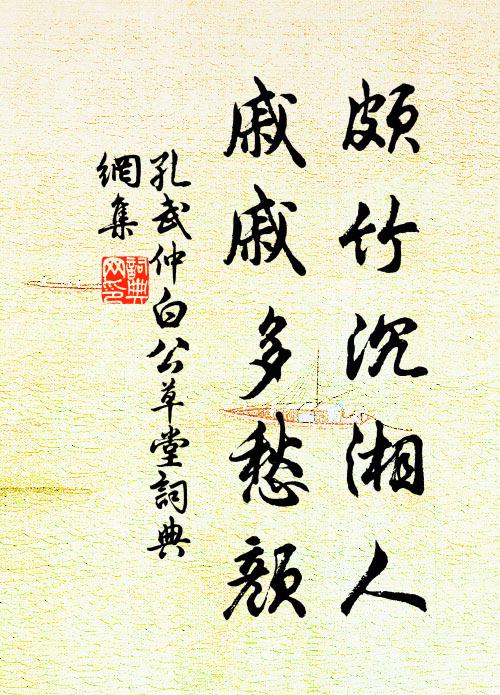 頗竹沉湘人
戚戚多愁顏
孔武仲白公草堂詞典
網集
詞典
网